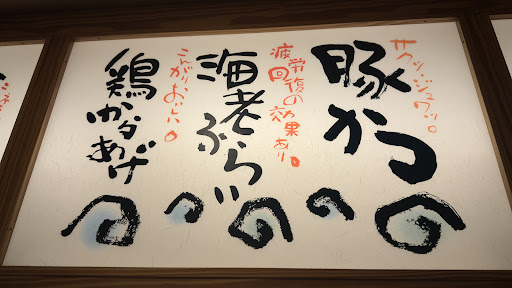 サクッ、ジュワッ。
豚かつ
疲労回復の効果あり。
海老ふらい
こんがり、
鶏からあげ